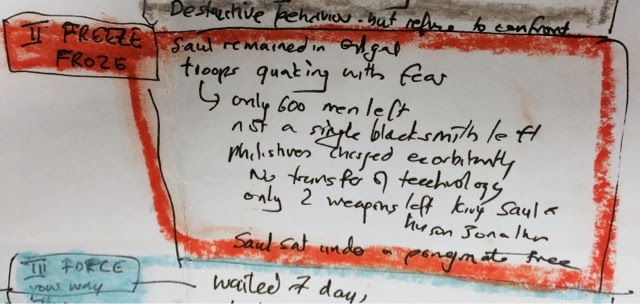 Destructive behaviour. but refuse to confront
II FREEZE
FROZE
Saul remained in Gilgal
troops quaking with fear
↳ only 600 men left
not a single blacksmith left
philistines charged exorbitantly
No transfer of technology
only 2 weapons left king Saul &
his son Jonathan
Saul sat under a pomgrnate tree
III FORCE
your way
waited 7 day,